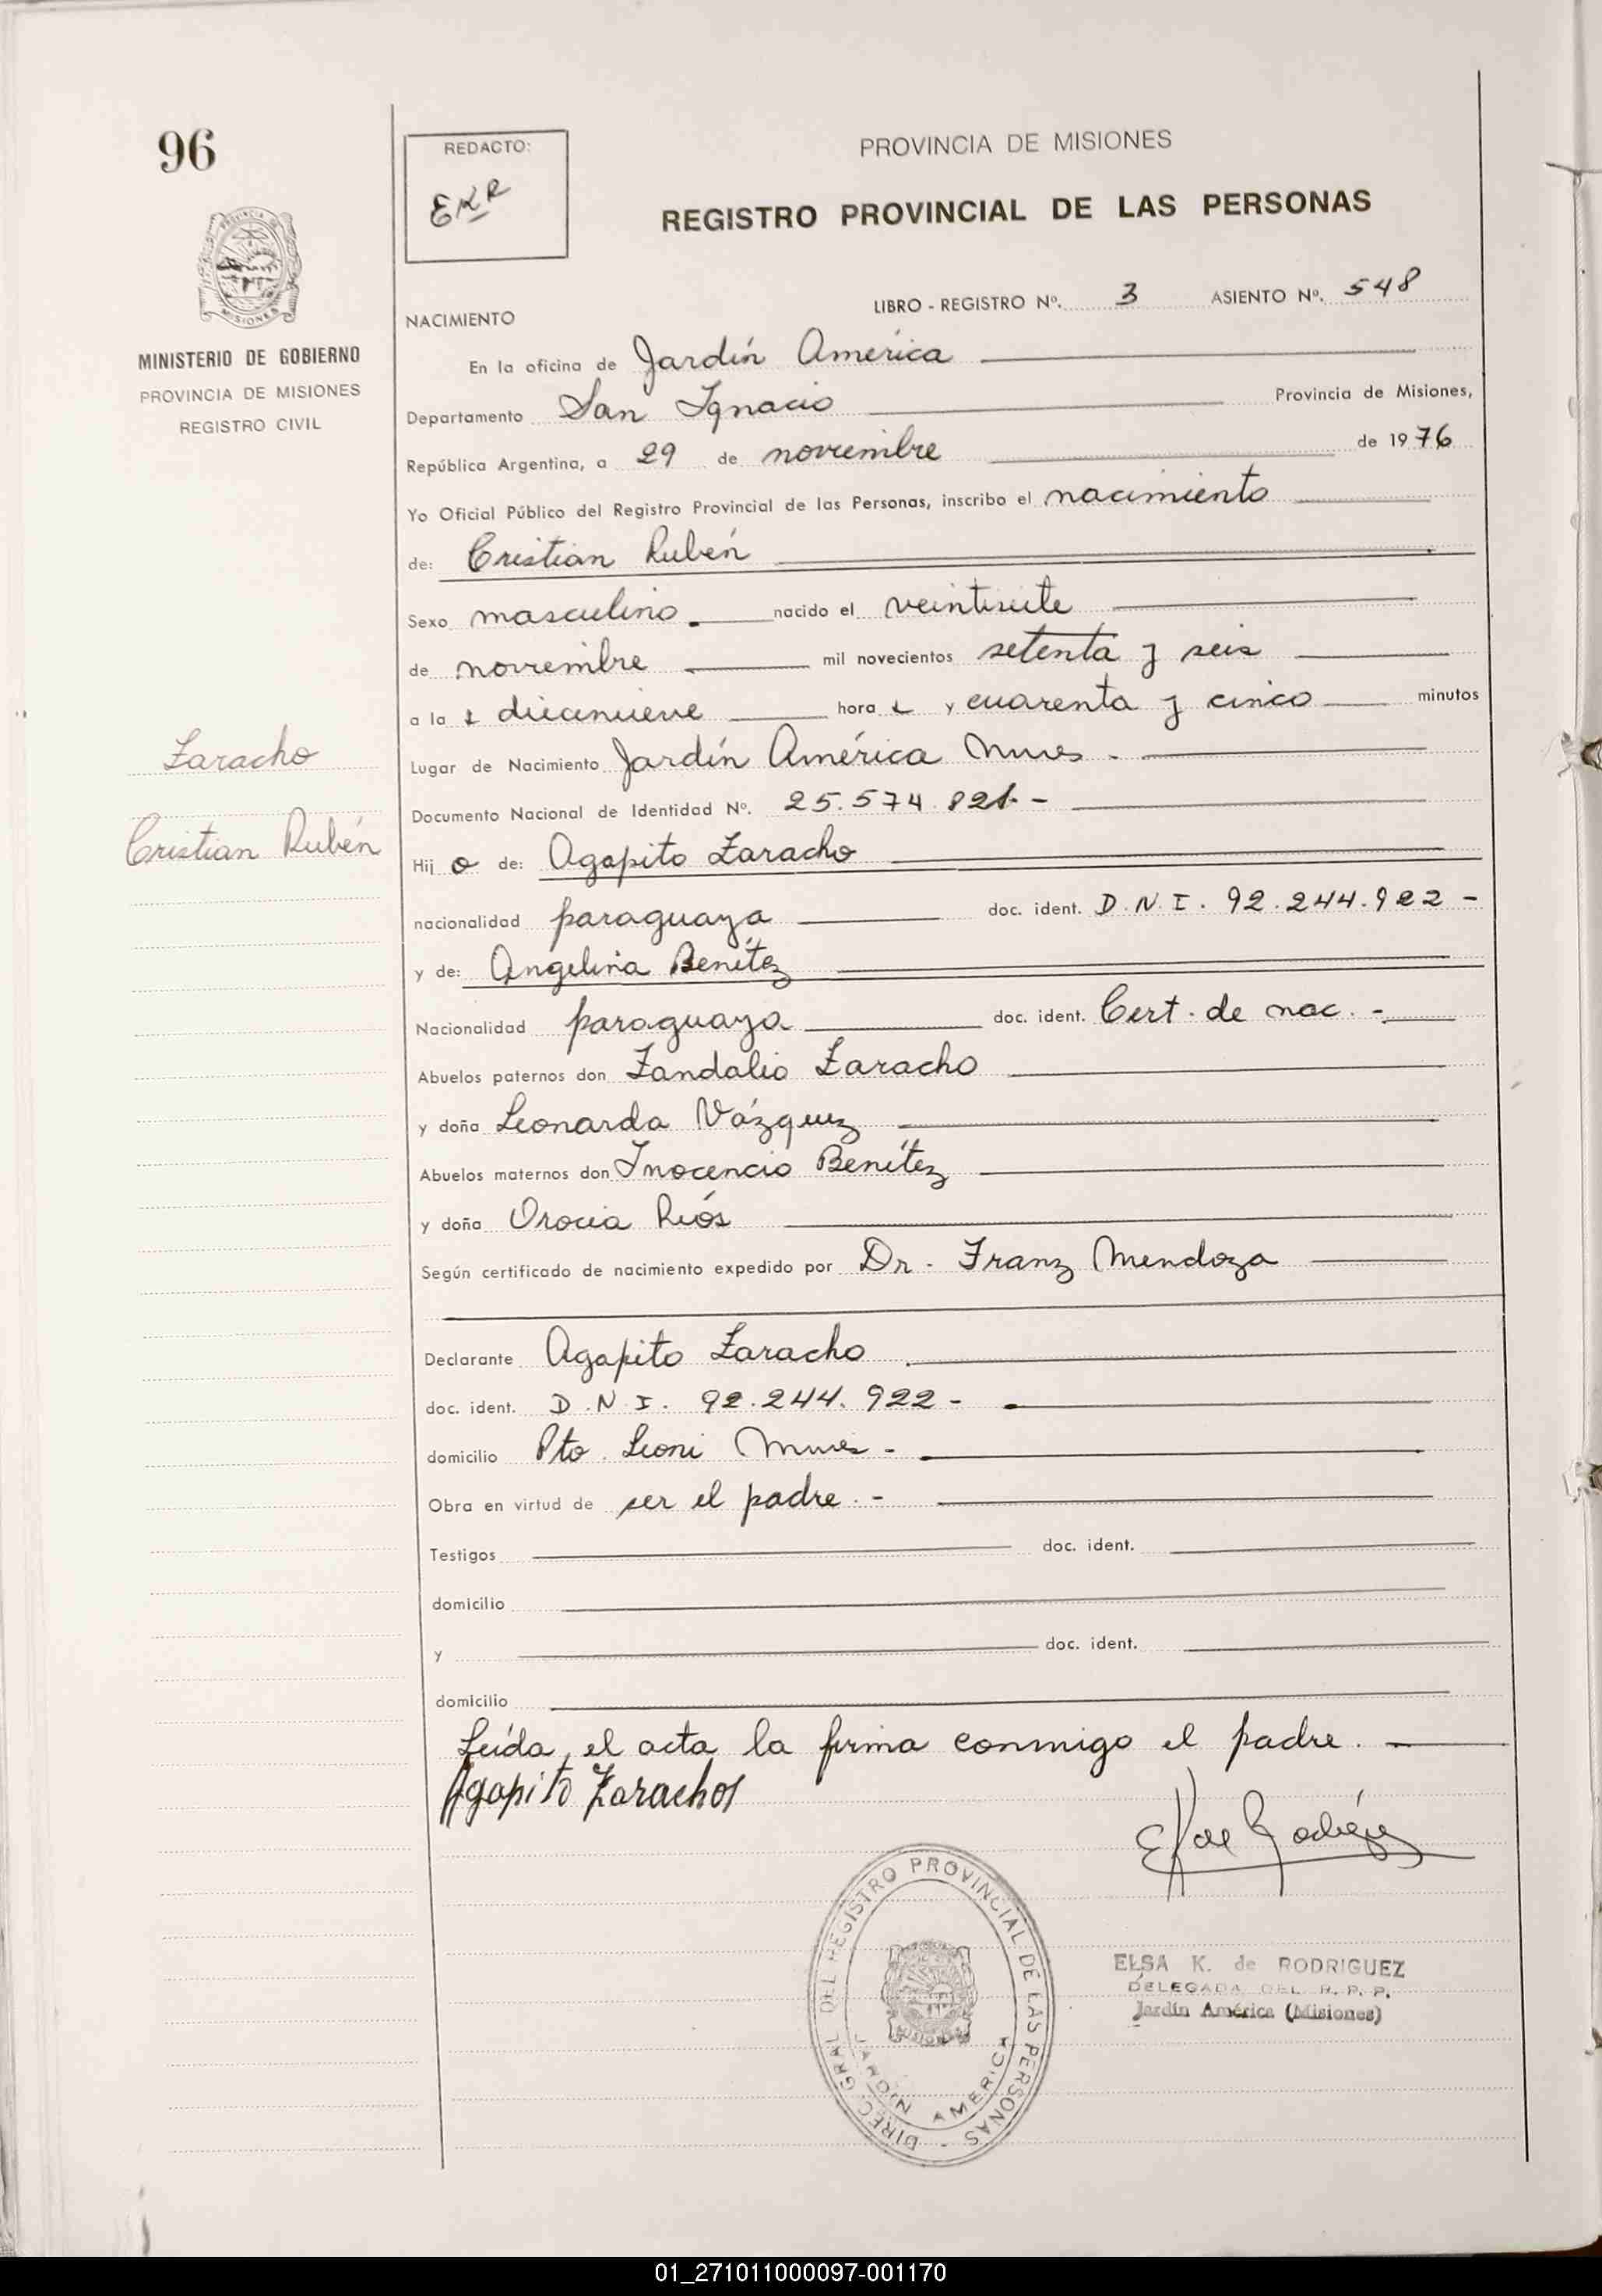 96
REDACTO:
EKR
PROVINCIA DE MISIONES
REGISTRO PROVINCIAL DE LAS PERSONAS
MINISTERIO DE GOBIERNO
PROVINCIA DE MISIONES
REGISTRO CIVIL
LIBRO - REGISTRO Nº. 3 ASIENTO Nº. 548
NACIMIENTO
En la oficina de Jardín América
Departamento San Ignacio Provincia de Misiones,
República Argentina, a 29 de noviembre de 1976
Yo Oficial Público del Registro Provincial de las Personas, inscribo el nacimiento
de: Cristian Rubén
Sexo masculino. nacido el veintisiete
de noviembre mil novecientos setenta y seis
a la s diecinueve hora s y cuarenta y cinco minutos
Zaracho
Cristian Rubén
Lugar de Nacimiento Jardín América Mnes -
Documento Nacional de Identidad Nº. 25.574.821.-
Hij o de: Agapito Zaracho
nacionalidad paraguaya doc. ident. D.N.I. 92.244.922 -
y de: Angelina Benítez
Nacionalidad paraguaya doc. ident. Cert. de nac. -
Abuelos paternos don Zandalio Zaracho
y doña Leonarda Vázquez
Abuelos maternos don Inocencio Benítez
y doña Orocia Ríos
Según certificado de nacimiento expedido por Dr. Franz Mendoza
Declarante Agapito Zaracho
doc. ident. D.N.I. 92.244.922 -
domicilio Pto. Leoni Mnes -
Obra en virtud de ser el padre. -
Testigos doc. ident.
domicilio
y doc. ident.
domicilio
Leída, el acta la firma conmigo el padre.
Agapito Zarachos
E K de Rodríguez
DIREC. GRAL. DEL REGISTRO PROVINCIAL DE LAS PERSONAS -
JARDIN AMERICA
MISIONES
ELSA K. de RODRIGUEZ
DELEGADA DEL R. P. P.
Jardín América (Misiones)
01_271011000097-001170